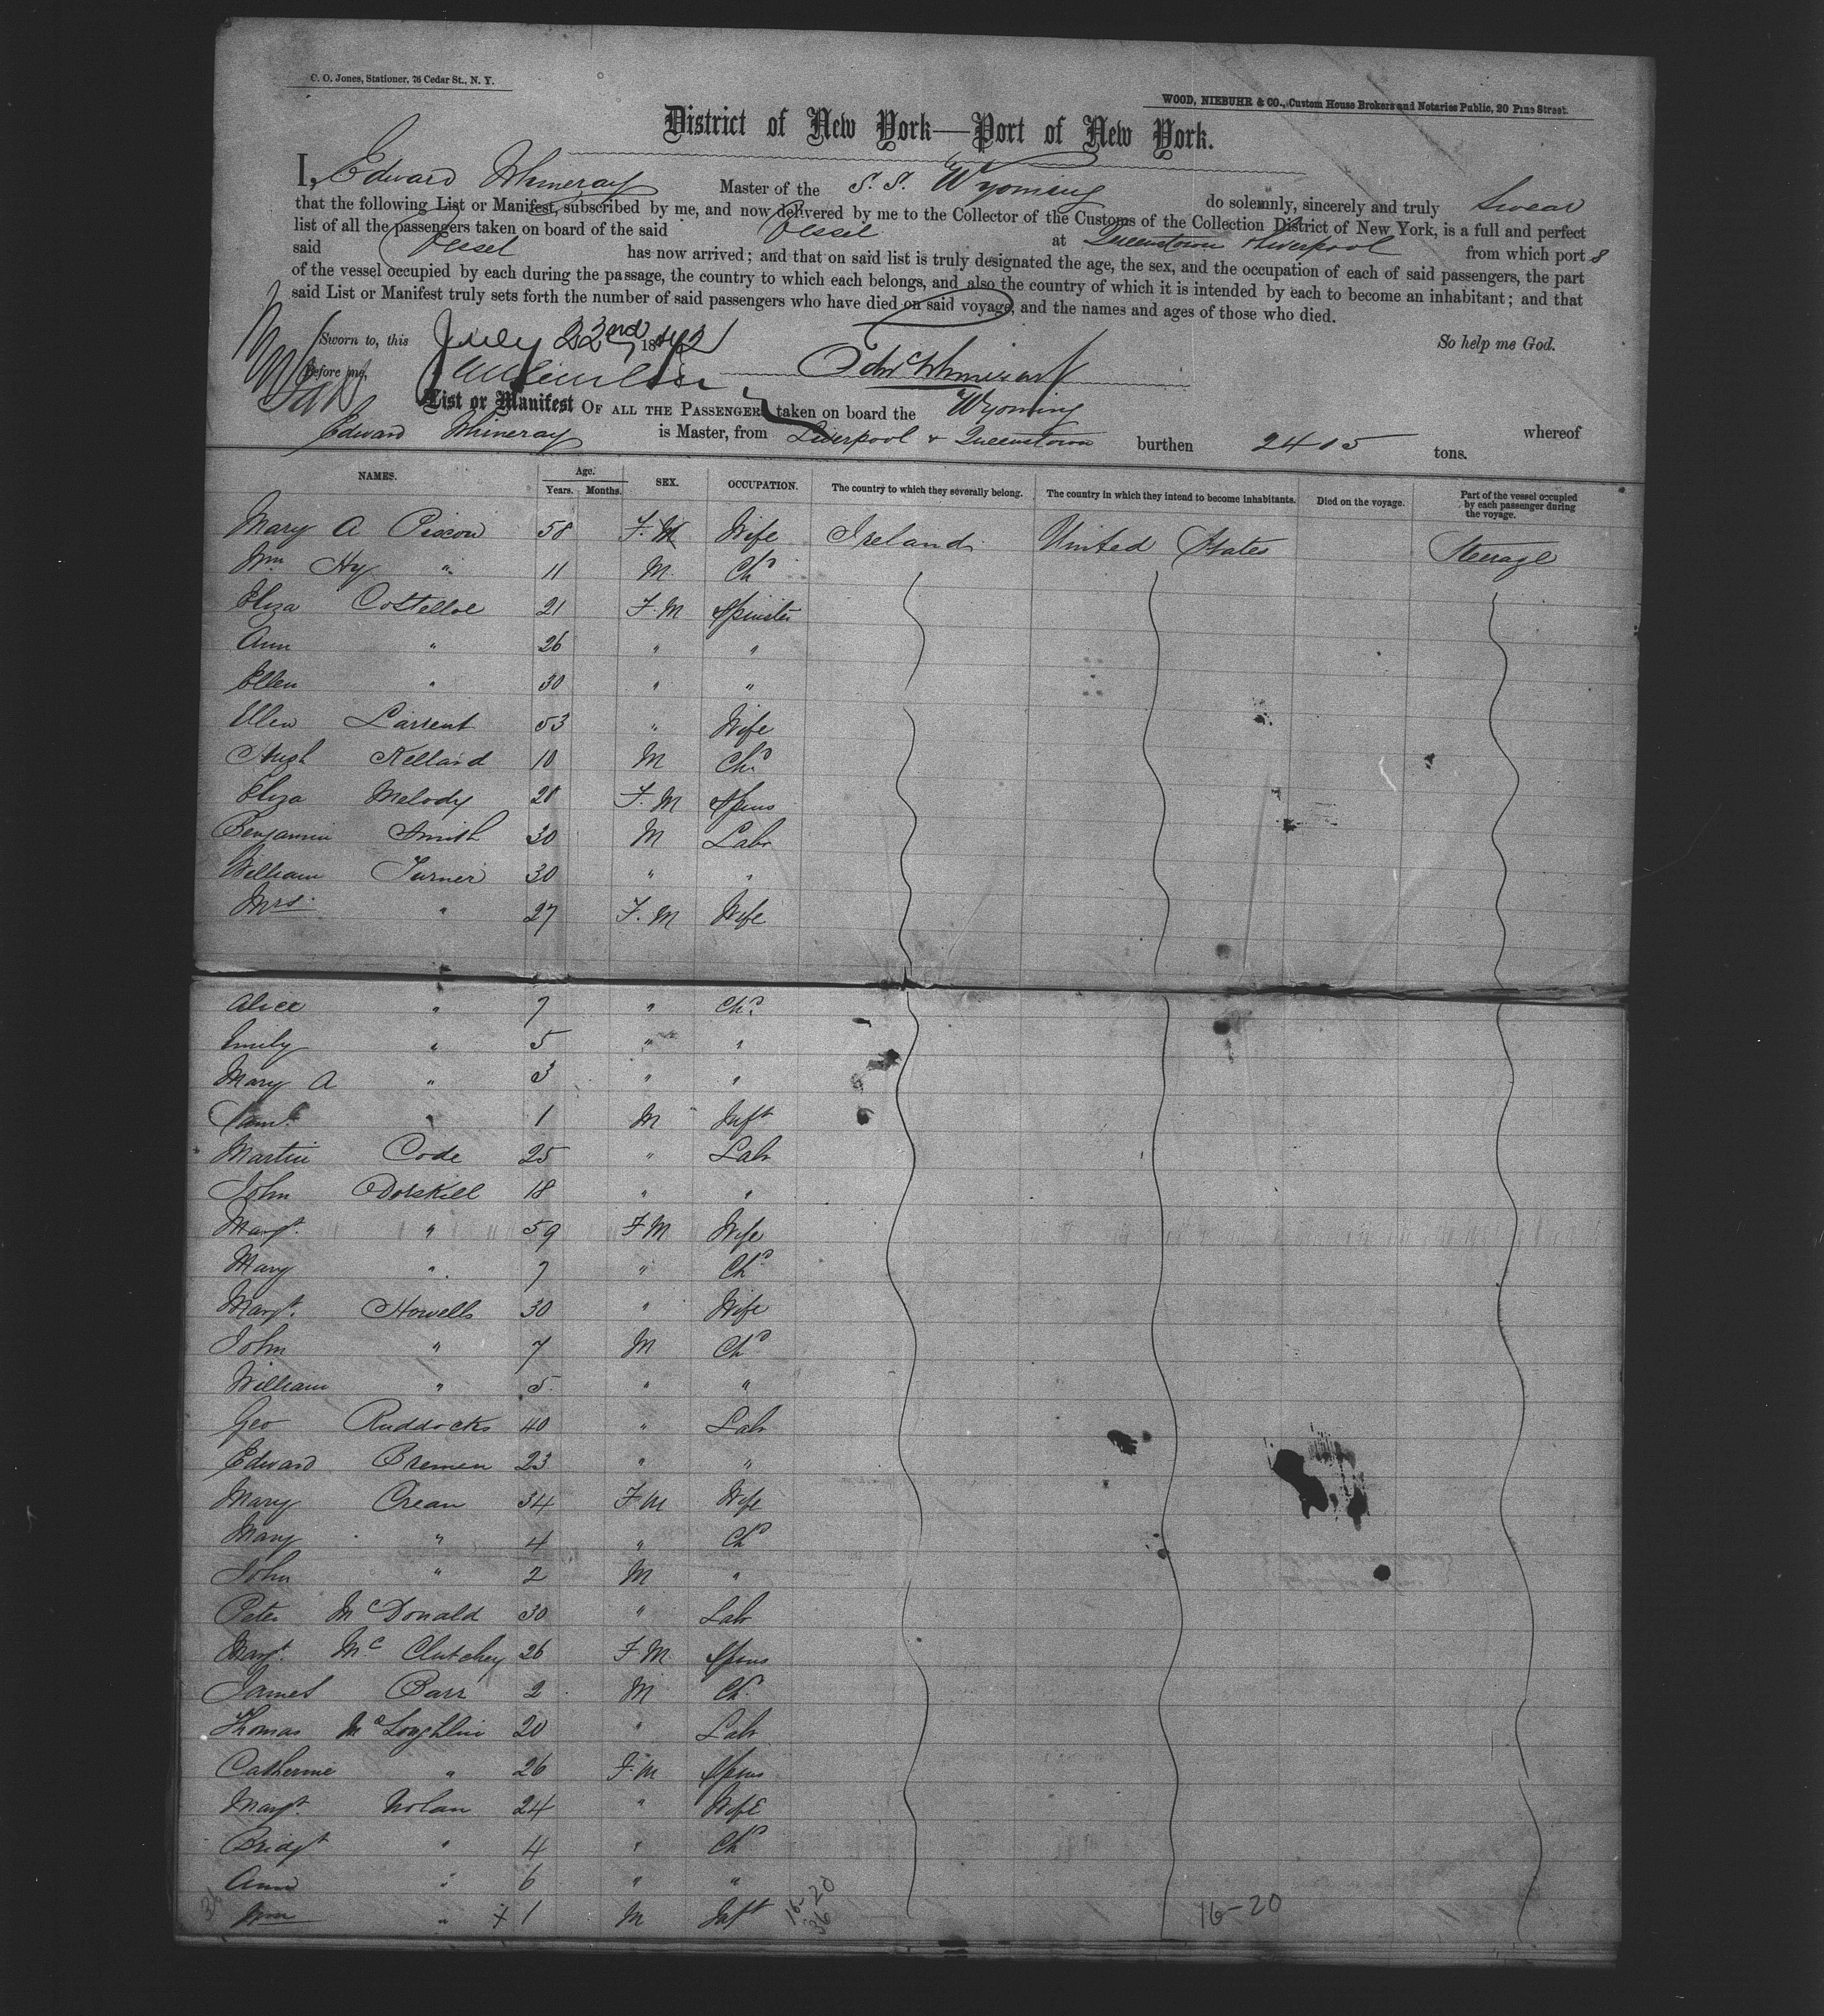 C. O. Jones, Stationer, 76 Cedar St., N. Y.
WOOD, NIEBUHR & CO., Custom House Brokers and Notaries Public, 20 Pine Street.
District of New York—Port of New York.
I, Edward Whineray Master of the S. S. Wyoming do solemnly, sincerely and truly Swear
that the following List or Manifest, subscribed by me, and now delivered by me to the Collector of the Customs of the Collection District of New York, is a full and perfect
list of all the passengers taken on board of the said Vessel at Queenstown & Liverpool from which port s
said Vessel has now arrived; and that on said list is truly designated the age, the sex, and the occupation of each of said passengers, the part
of the vessel occupied by each during the passage, the country to which each belongs, and also the country of which it is intended by each to become an inhabitant; and that
said List or Manifest truly sets forth the number of said passengers who have died on said voyage, and the names and ages of those who died.
Sworn to, this July 23rd 18 So help me God.
Before me, Edw Whineray
List or Manifest OF ALL THE PASSENGERS taken on board the Wyoming whereof
Edward Whineray is Master, from Liverpool & Queenstown burthen 2415 tons.
NAMES. Age. Years. Months. SEX. OCCUPATION. The country to which they severally belong. The country in which they intend to become inhabitants. Died on the voyage. Part of the vessel occupied by each passenger during the voyage.
Mary A 58 F. M Wife Ireland United States Steerage
Wm Hy " 11 M. Chd
Eliza Costelloe 21 F. M Spinster
Ann " 26 " "
Ellen " 30 " "
Ellen 53 " Wife
Hugh 10 M Chd
Eliza Melody 28 F. M Spins
Benjamin Smith 30 M Labr
William Turner 30 " "
Mrs. " 27 F. M Wife
Alice " 7 " Chd
Emily " 5 " "
Mary A " 3 " "
Saml " 1 M Inft
Martin Code 25 " Labr
John 18 " "
Margt. " 59 F M Wife
Mary " 7 " Chd
Margt. Howells 30 " Wife
John " 7 M Chd
William " 5 " "
Geo Ruddocks 40 " Labr
Edward Bremen 23 " "
Mary Crean 34 F M Wife
Mary " 4 " Chd
John " 2 M "
Peter McDonald 30 " Labr
Margt. Mc Clutchey 26 F M Spins
James Barr 2 M Ch.
Thomas McLoughlin 20 " Labr
Catherine " 26 F. M Spins
Margt. Nolan 24 " Wife
Bridgt " 4 " Chd
Ann " 6 " "
Wm " + 1 M Inft
36
16-20
36
16-20